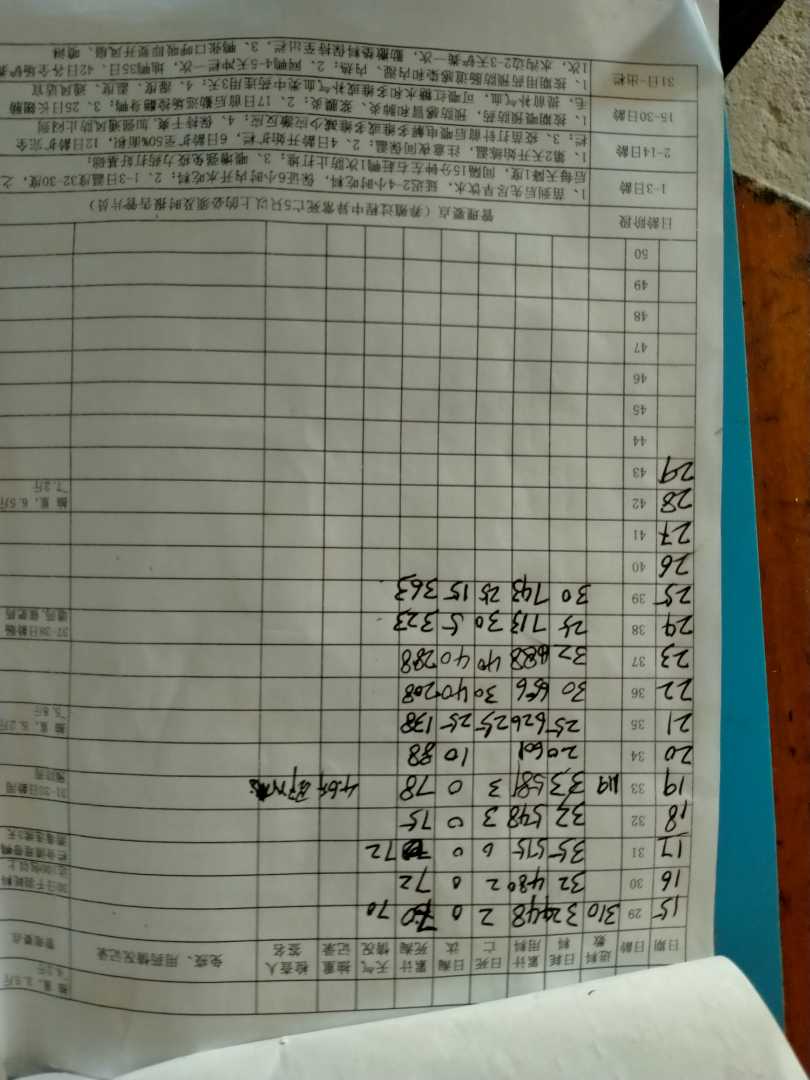 抽重，3.5斤
日期 日龄 进料数 日耗料 累计用料 日死亡 日淘汰 累计死淘 天气情况 抽重记录 检查人签名 免疫、用药情况记录 管理要点
15 29 310 32 448 2 0 70 70
16 30 32 480 2 0 72
17 31 35 515 0 0 72
18 32 32 548 3 0 75
19 33 119 33 581 3 0 78 4.6斤
20 34 20 601 10 88
21 35 25 626 25 25 138 抽重，5.2斤
~5.8斤
22 36 30 656 30 40 208
23 37 32 688 40 40 288
24 38 25 713 30 5 323
25 39 30 743 25 15 363
26 40
27 41
28 42 抽重，6.5斤
~7.2斤
29 43
44
45
46
47
48
49
50
日龄阶段 管理要点（养殖过程中异常死亡5只以上的必须及时报告管片员）
1-3日龄 1、苗到后先尽早饮水，延迟2-4小时吃料，保证6小时内开水吃料；2、1-3日温度32-30度，之
后每天降1度，间隔15分钟左右赶鸭1次防止打堆，3、喂增强免疫力药打好基础；
2-14日龄 1、第2天开始炼温，注意夜间保温；2、4日龄开始扩栏，6日龄扩至50%面积，12日龄扩完全
栏；3、疫苗打针前后喂电解多维或多维减少应激反应；4、保持干爽，加强通风防止闷
15-30日龄 1、按期喂预防药，预防感冒和肺炎、浆膜炎；2、17日前后勤巡场捡翻身鸭；3、25日长翅膀
毛，提前补气血，可喂红糖水和多维或补气血类中药连用3天；4、湿度、温度、通风适宜
31日-出栏 1、按期用药预防肠道感染和内湿、内热；2、网鸭4-5天冲栏一次，地鸭35日、42日各全场铲粪
1次，水沟边2-3天铲粪一次，勤撒垫料保持至出栏，3、鸭张口呼吸即要开风扇、喷淋